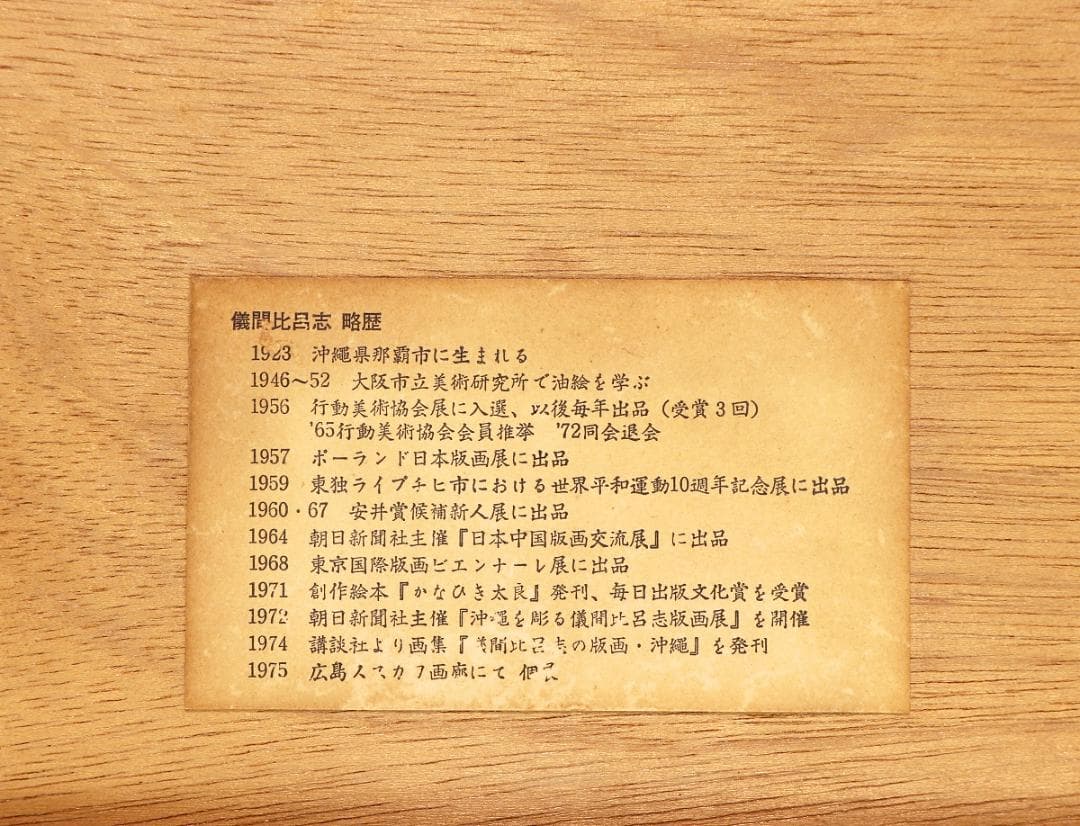 儀間比呂志 略歴
1923 沖繩県那覇市に生まれる
1946～52 大阪市立美術研究所で油絵を学ぶ
1956 行動美術協会展に入選、以後毎年出品（受賞3回）
'65行動美術協会会員推挙 '72同会退会
1957 ポーランド日本版画展に出品
1959 東独ライプチヒ市における世界平和運動10週年記念展に出品
1960・67 安井賞候補新人展に出品
1964 朝日新聞社主催『日本中国版画交流展』に出品
1968 東京国際版画ビエンナーレ展に出品
1971 創作絵本『かなひき太良』発刊、毎日出版文化賞を受賞
1972 朝日新聞社主催『沖繩を彫る儀間比呂志版画展』を開催
1974 講談社より画集『儀間比呂志の版画・沖繩』を発刊
1975 広島 画廊にて 個展